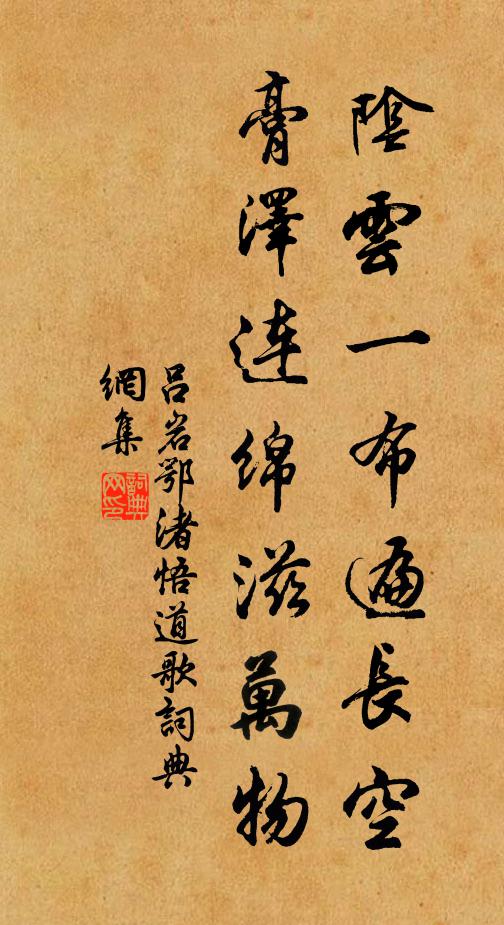 陰雲一布遍長空
膏澤連綿滋萬物
呂岩鄂渚悟道歌詞典
網集
詞典
网印